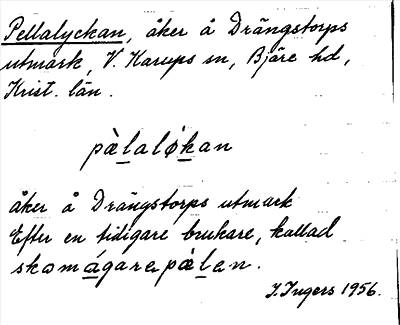 Pellalyckan, åker å Drängstorps
utmark, V. Karups sn, Bjäre hd,
Krist. län.
pàlaløkan
åker å Drängstorps utmark
Efter en tidigare brukare, kallad
skomágarapàlen.
I. Ingers 1956.